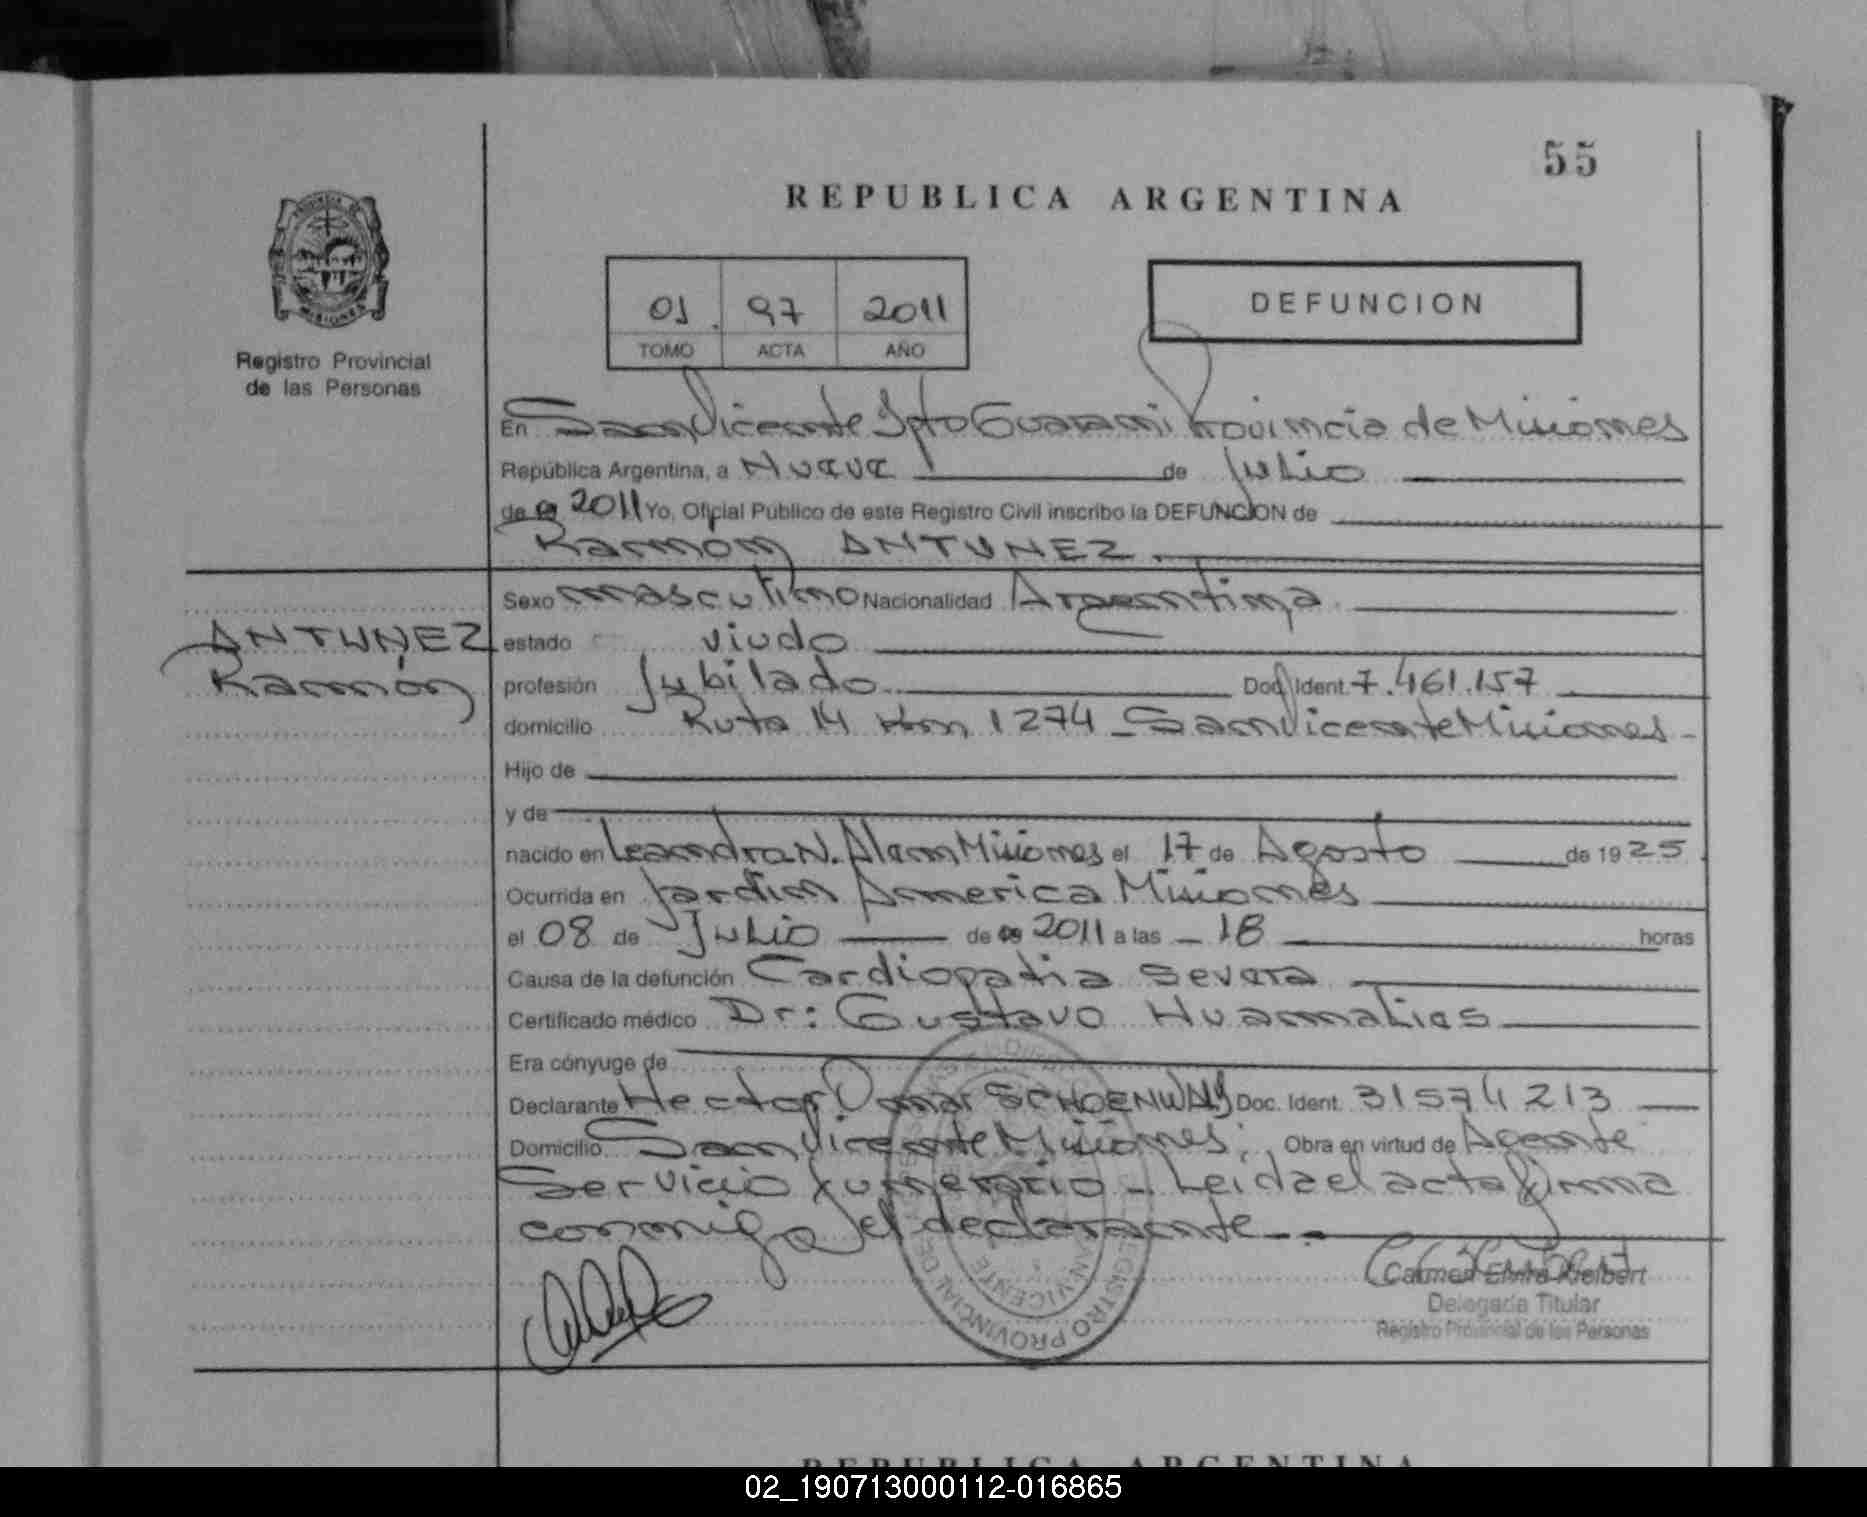 55
REPUBLICA ARGENTINA
MISIONES
Registro Provincial
de las Personas
01 97 2011
TOMO ACTA AÑO
DEFUNCION
En San Vicente Dpto Guarani Provincia de Misiones
República Argentina, a Nueve de Julio
de 2011 Yo, Oficial Público de este Registro Civil inscribo la DEFUNCION de
Ramon ANTUNEZ.
ANTUNEZ
Ramón
Sexo masculino Nacionalidad Argentina
estado viudo
profesión Jubilado Doc. Ident. 7.461.157
domicilio Ruta 14 Km 1274 - San Vicente Misiones -
Hijo de
y de
nacido en Leandro N. Alem Misiones el 17 de Agosto de 1925
Ocurrida en Jardin America Misiones
el 08 de Julio de 2011 a las - 18 horas
Causa de la defunción Cardiopatia severa
Certificado médico Dr: Gustavo Huamalies
Era cónyuge de
Declarante Hector Omar SCHOENWALD Doc. Ident. 31574213
Domicilio San Vicente Misiones; Obra en virtud de Agente
Servicio funerario - Leida el acta firma
conmigo el declarante - -
REGISTRO PROVINCIAL DE LAS PERSONAS
SAN VICENTE
Carmen Elvira Kleibert
Delegada Titular
Registro Provincial de las Personas
REPUBLICA ARGENTINA
02_190713000112-016865